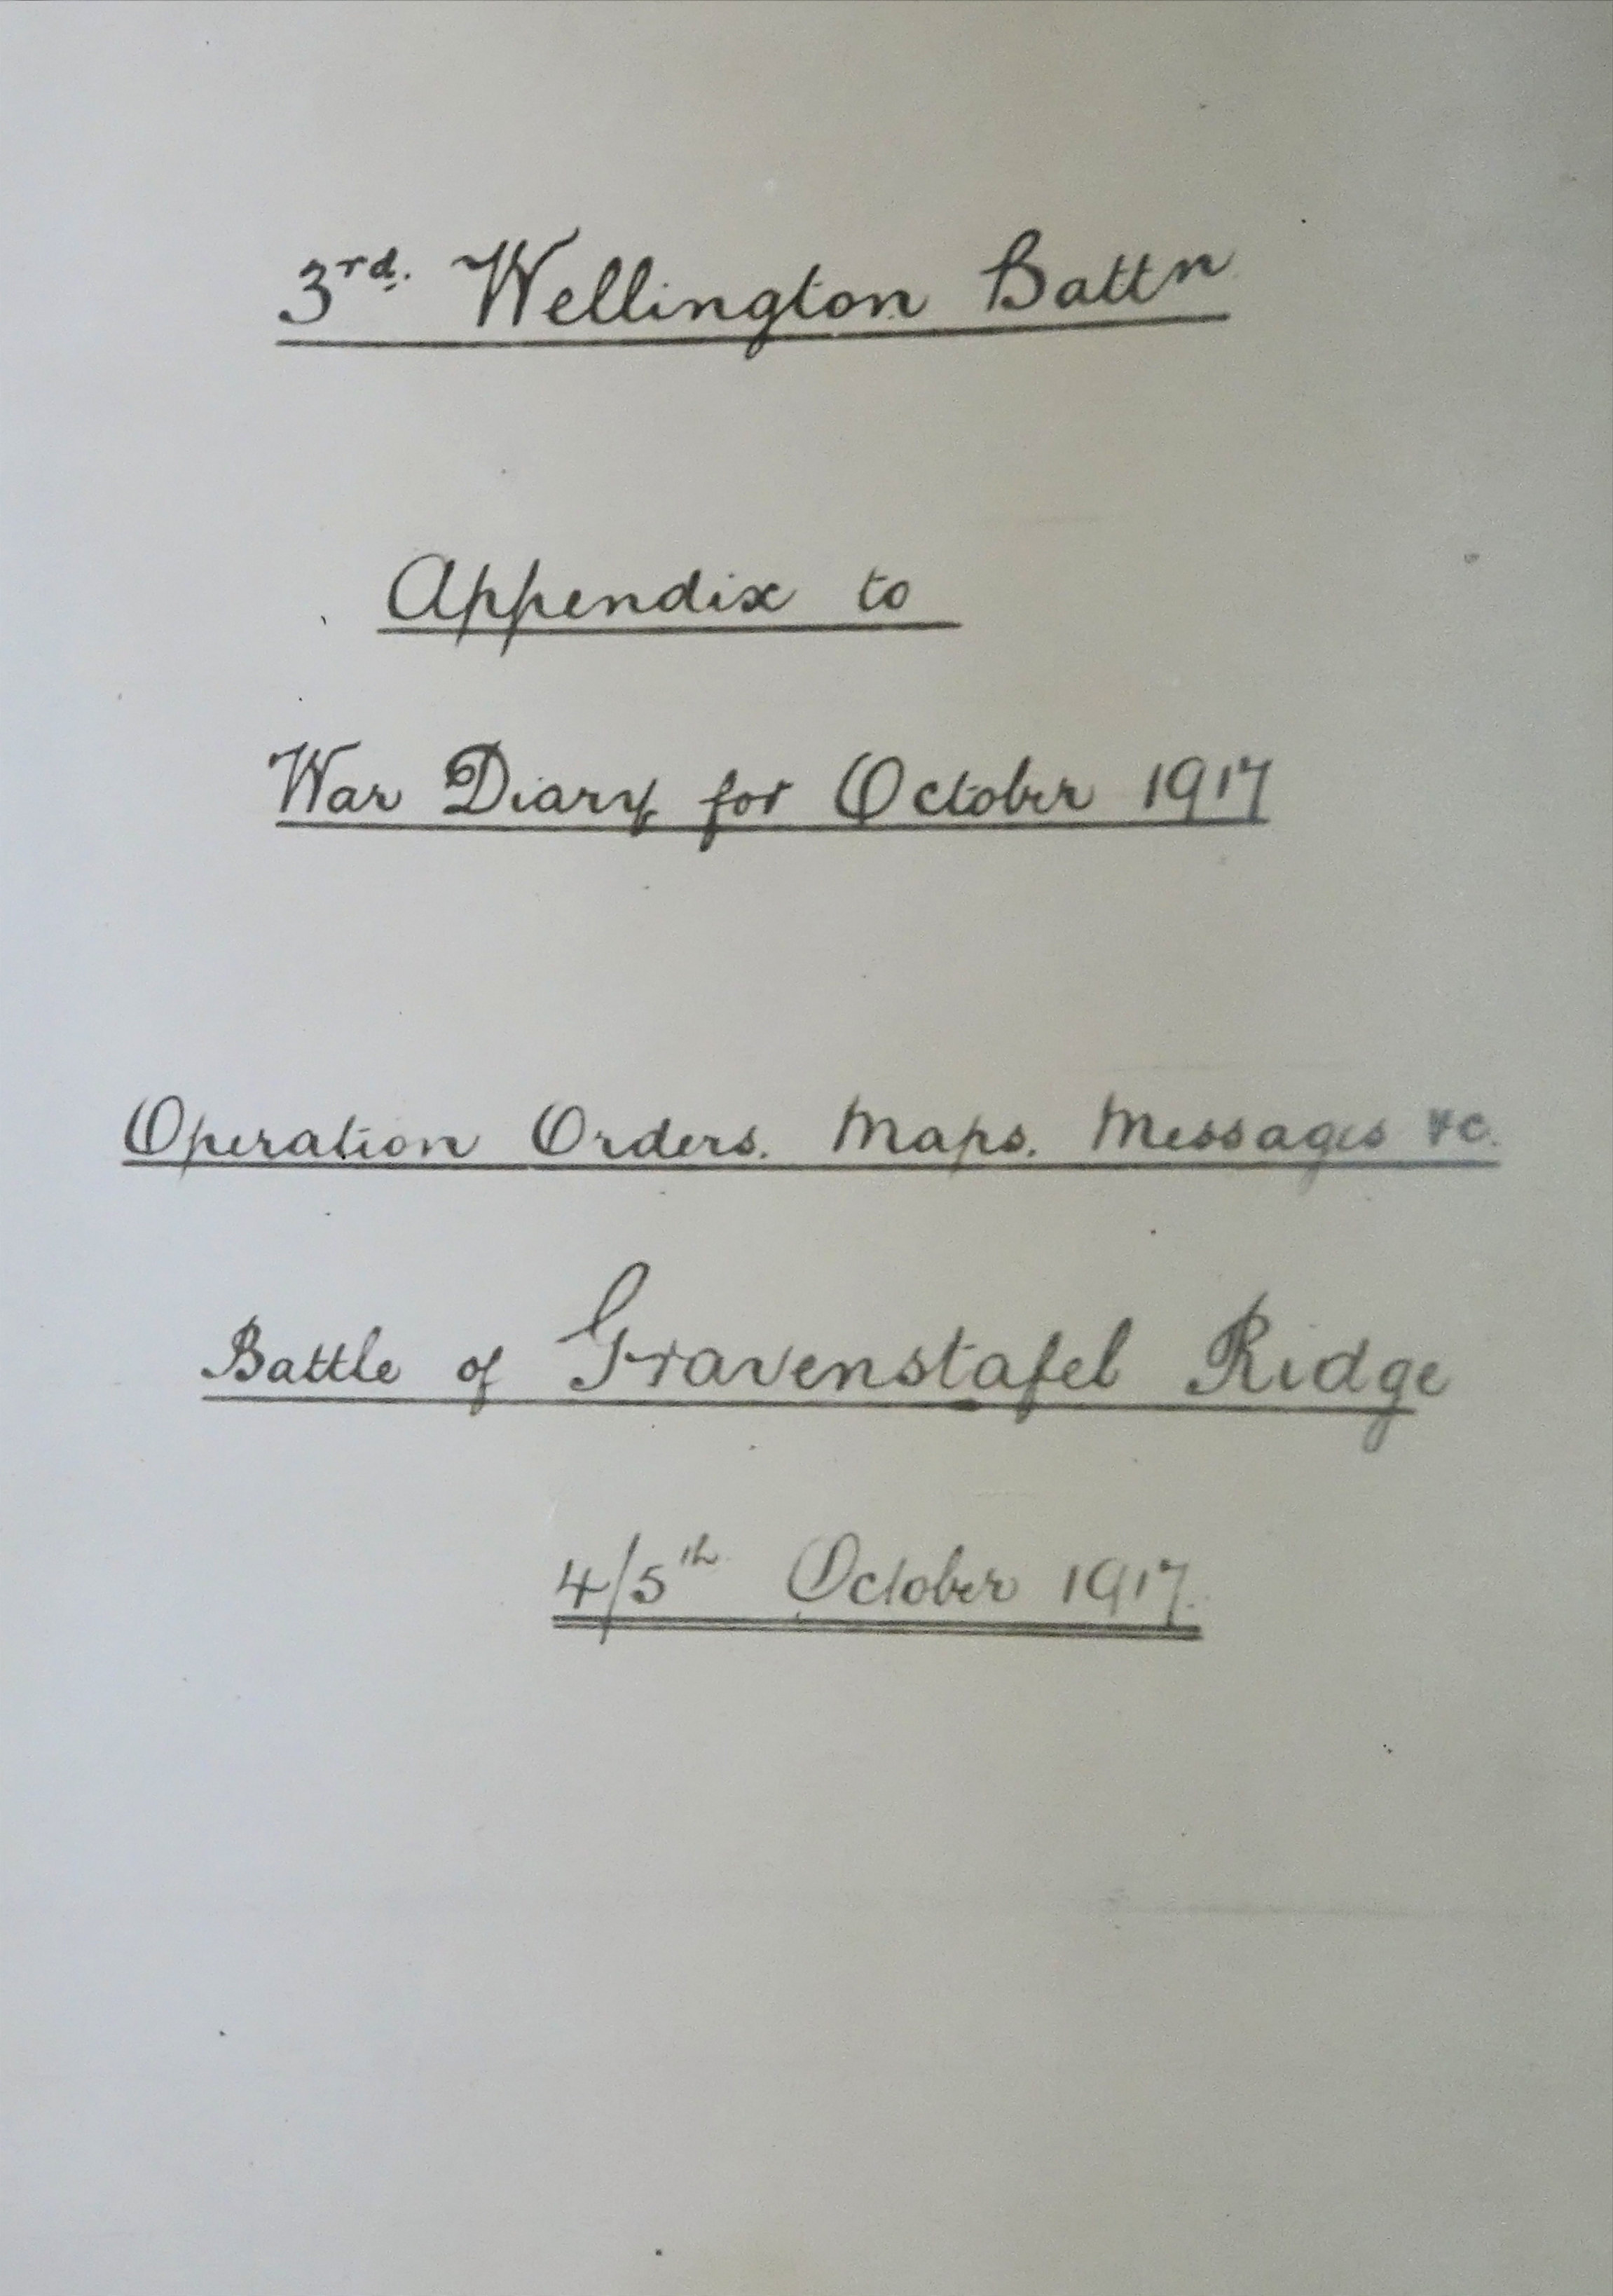 3rd. Wellington Battn
Appendix to
War Diary for October 1917
Operation Orders. Maps. Messages &c.
Battle of Gravenstafel Ridge
4/5th October 1917.